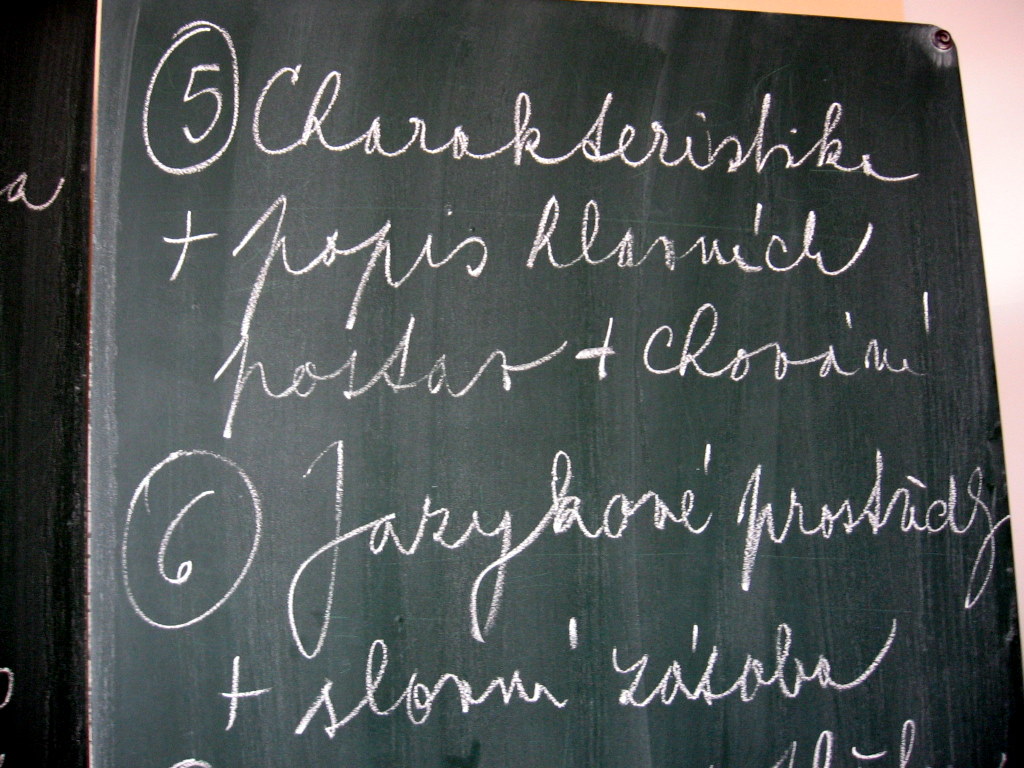 a
5 Charakteristika
+ popis hlavních
postav + chování
6 Jazykové prostředky
+ slovní zásoba